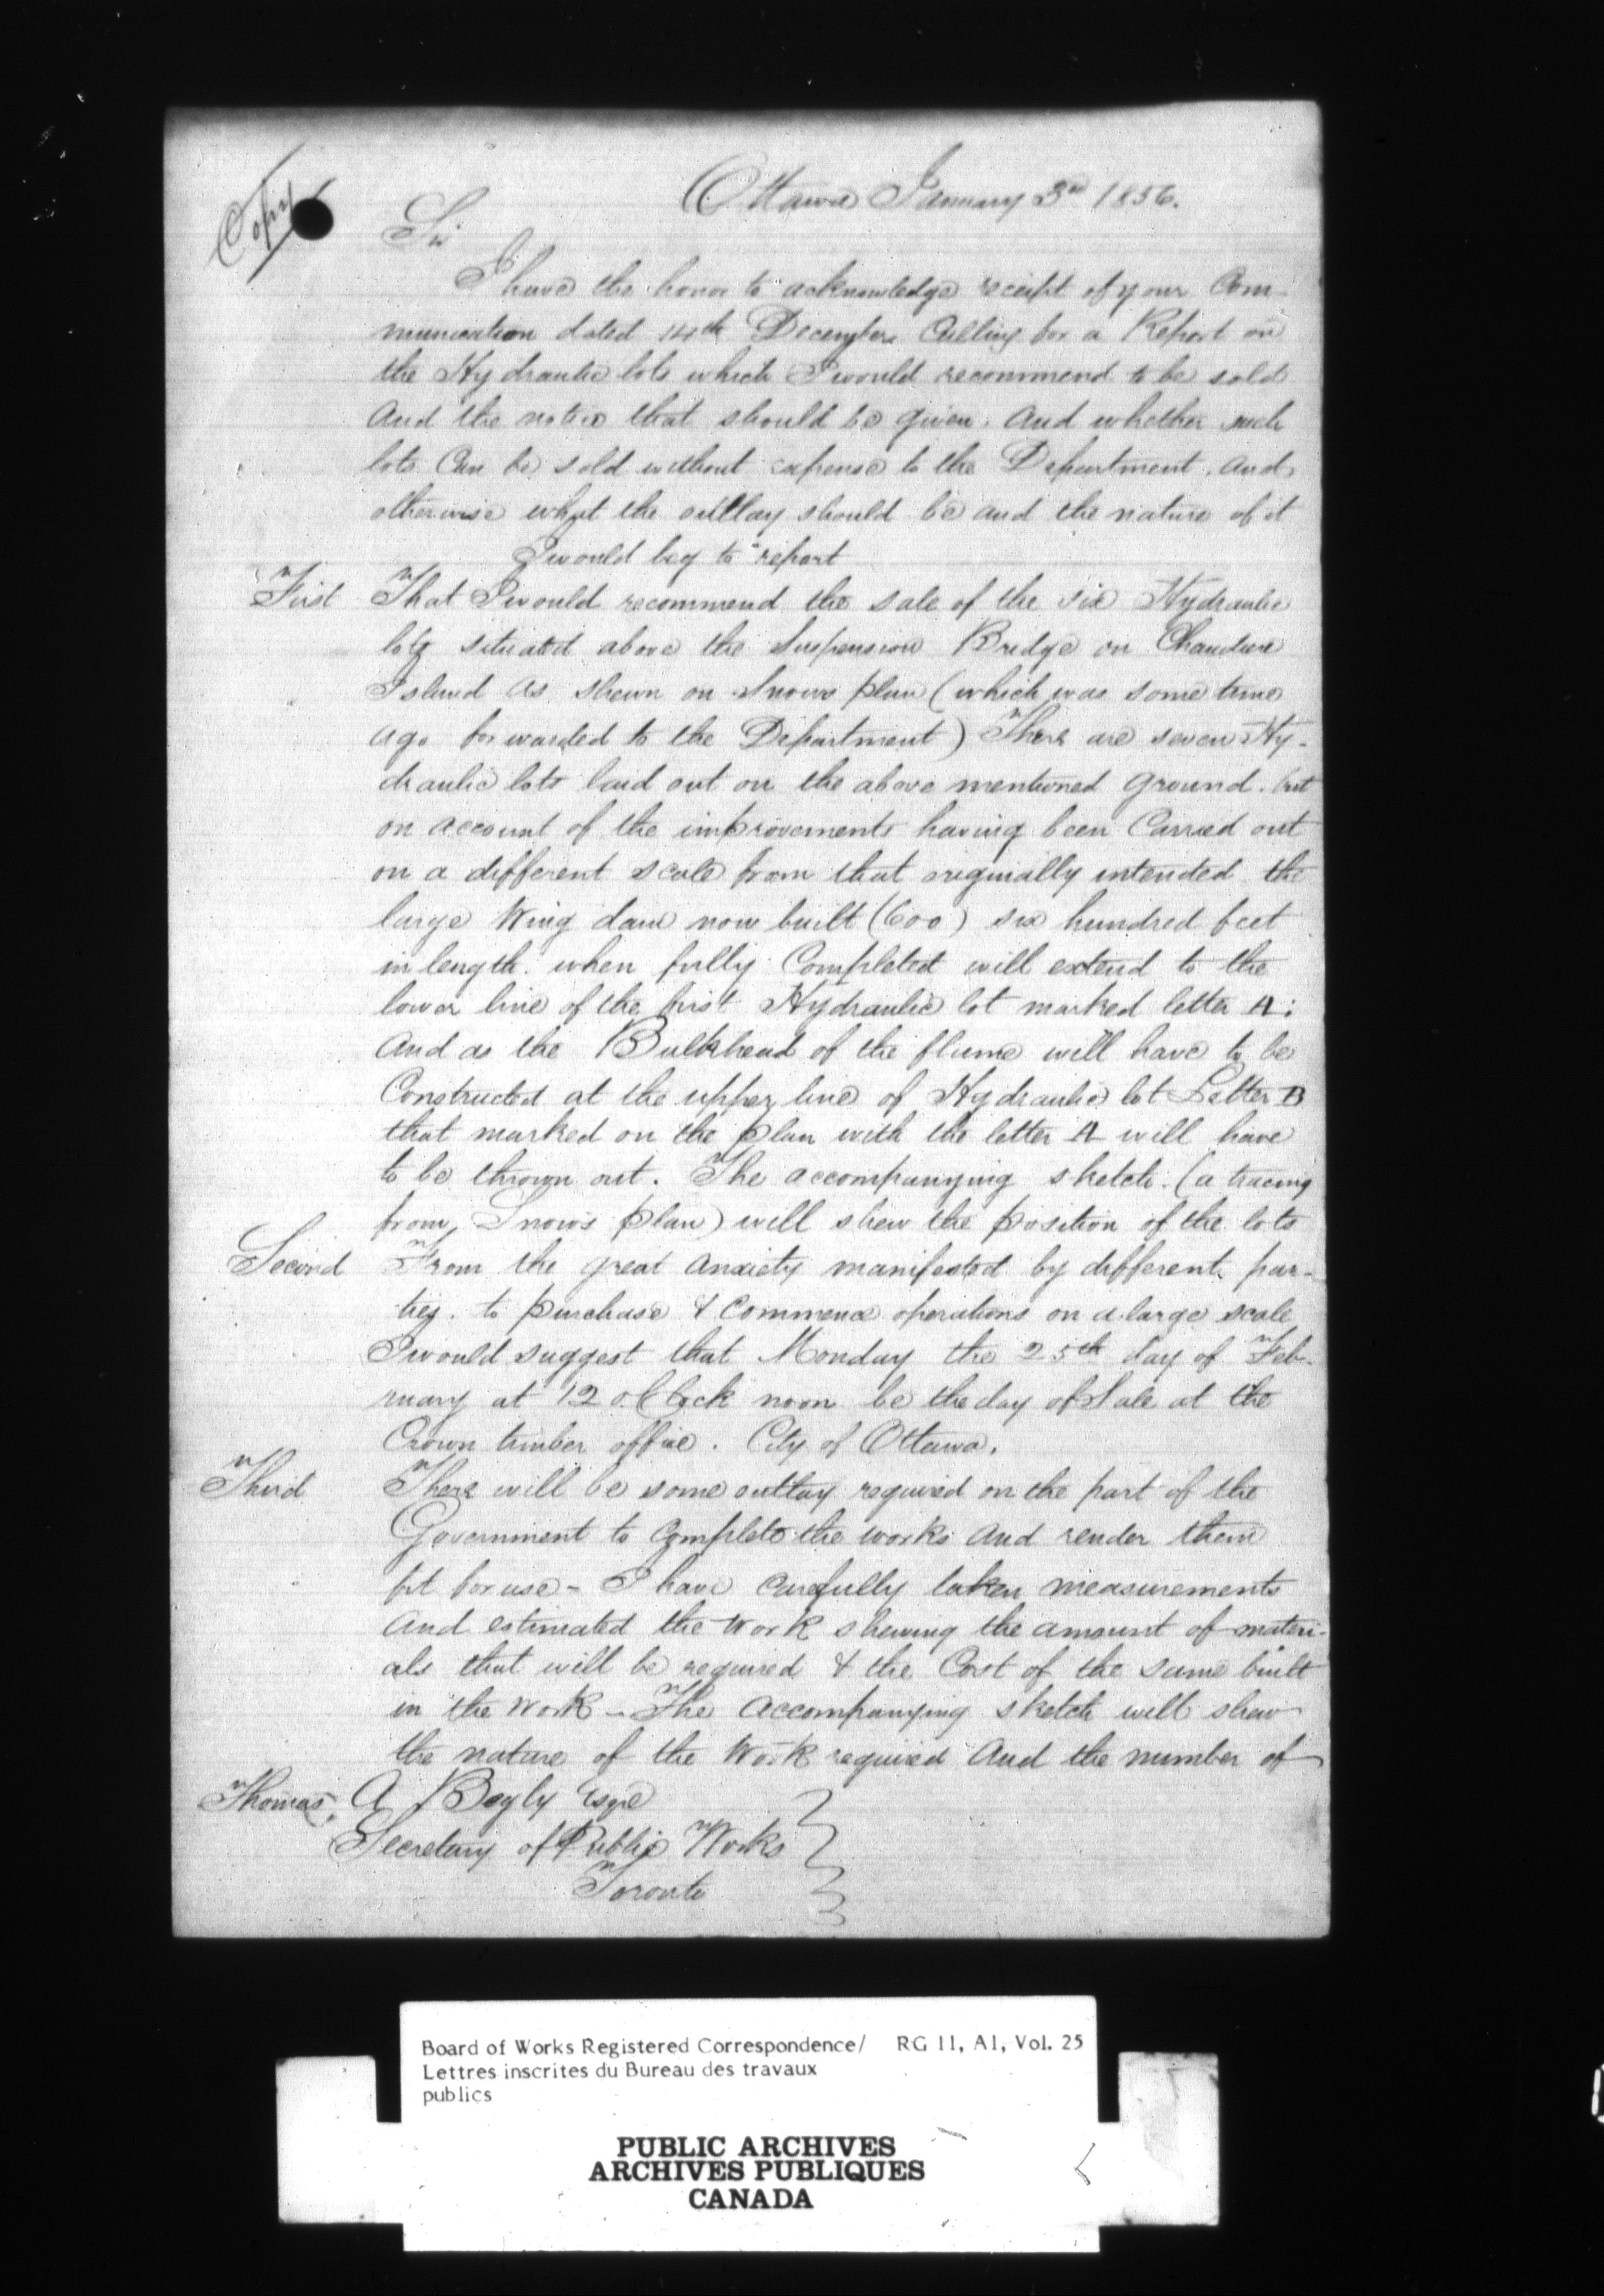 Copy
Ottawa January 3rd 1856.
Sir
I have the honor to acknowledge receipt of your Com-
munication dated 14th December Calling for a Report on
the Hydraulic lots which I would recommend to be sold
And the notice that should be given. And whether such
lots Can be sold without expense to the Department. And
otherwise what the outlay should be and the nature of it
I would beg to report
First That I would recommend the sale of the six Hydraulic
lots situated above the Suspension Bridge on Chaudiere
Island As shewn on Snows plan (which was some time
ago forwarded to the Department) There are seven Hy-
draulic lots laid out on the above mentioned ground. but
on account of the improvements having been Carried out
on a different scale from that originally intended the
large Wing dam now built (600) six hundred feet
in length. when fully Completed will extend to the
lower line of the first Hydraulic lot marked letter A:
And as the Bulkhead of the flume will have to be
Constructed at the upper line of Hydraulic lot Letter B
that marked on the plan with the letter A will have
to be thrown out. The accompanying sketch. (a tracing
from Snow's plan) will shew the position of the lots
Second From the great Anxiety manifested by different par-
ties. to purchase & Commence operations on a large scale
I would suggest that Monday the 25th day of Feb-
ruary at 12 o'Clock noon be the day of Sale at the
Crown timber office. City of Ottawa.
Third There will be some outlay required on the part of the
Government to Complete the works And render them
fit for use - I have Carefully taken measurements
And estimated the Work shewing the amount of materi-
als that will be required & the Cost of the same built
in the Work - The Accompanying sketch will shew
the nature of the Work required And the number of
Thomas A Begly Esqre
Secretary of Public Works
Toronto
Board of Works Registered Correspondence/ RG 11, A1, Vol. 25
Lettres inscrites du Bureau des travaux
publics
PUBLIC ARCHIVES
ARCHIVES PUBLIQUES
CANADA